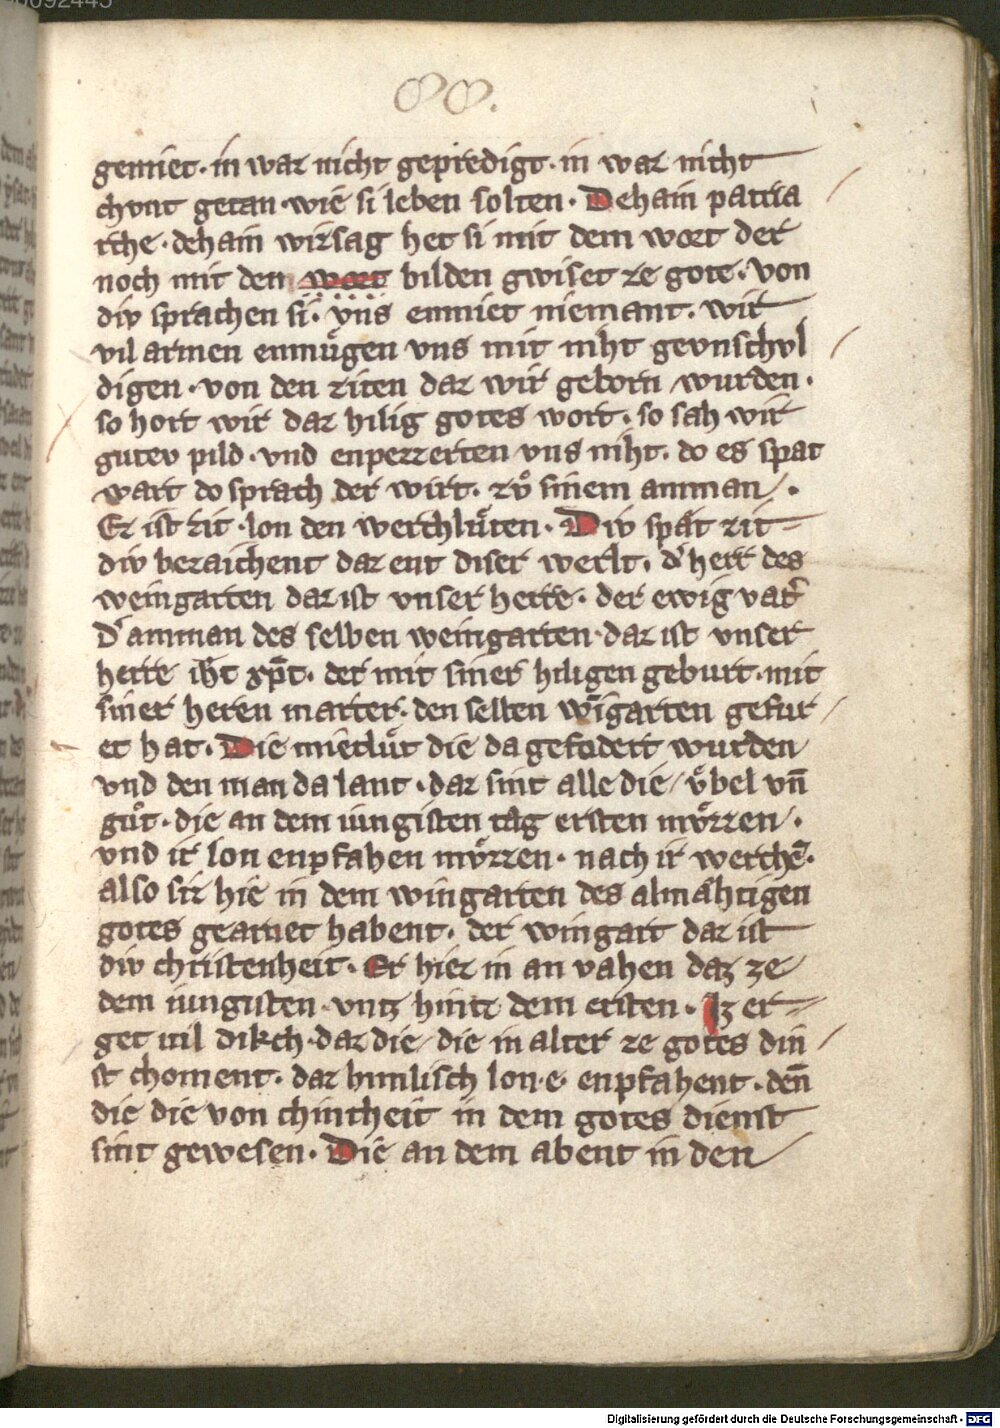 gemiet · in war nicht geprediget · in war nicht
chvnt getan · wie si leben solten · Dehain patria
rche · dehain wizsag het si mit dem wort der
noch mit dem wort bilden gwiset ze gote · von
div sprachen si · vns enmiet niemant · wir
vil armen enmuͤgen vns mit niht gevnschvl
digen · von den ziten daz wir geborn wurden ·
so hort wir daz hilig gotes wort · so sah wir
gutev pild · vnd enpezzerten vns niht · do es spat
wart do sprach der wirt · zuͦ sinem amman ·
Ez ist zit · lon den werchluͤten · Div spaͤt zit
div bezaichent daz ent diser werlt · d͛ herr des
weingarten daz ist vnser herre · der ewig vat͛
D͛ amman des selben weingarten · daz ist vnser
herre ih̄c xp̄c · der mit siner hiligen geburt · mit
siner heren marter · den selben wīgarten gefur
et hat · Die mietluͤt die da gefodert wurden
vnd den man da lant · daz sint alle die / vͤbel vn̄
guͦt · die an dem iungisten tag ersten mvͤzzen ·
vnd ir lon enpfahen mvͤzzen · nach ir werchē ·
also siz hie in dem wingarten des almaͤhtigen
gotes gearnet habent · der wingart daz ist
div christenheit · Er hiez in an vahen daz ze
dem iungisten vntz hintz dem ersten · Iz er-
get uil dikch · daz die / die in alter ze gotes din
st choment · daz himlisch lon · e · enpfahent · den̄
die die von chintheit in dem gotes dienst
sint gewesen · Die an dem abent in den
Digitalisierung gefördert durch die Deutsche Forschungsgemeinschaft - DFG